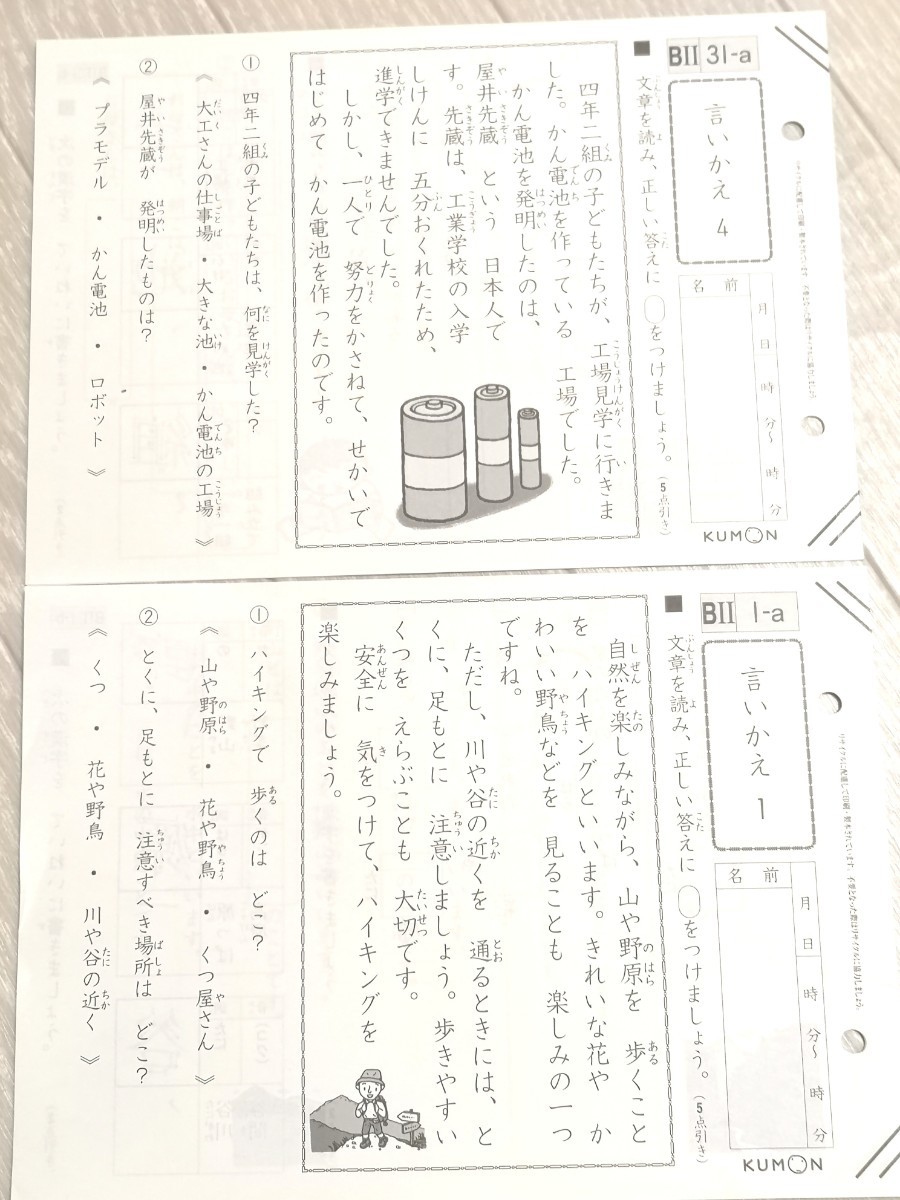 BII 31-a
言いかえ 4
名前
月 日
時 分〜 時 分
KUMON
■ 文章を読み、正しい答えに ◯をつけましょう。(5点引き)
四年二組の子どもたちが、工場見学に行きま
した。かん電池を作っている 工場でした。
かん電池を発明したのは、
屋井先蔵 という 日本人で
す。先蔵は、工業学校の入学
しけんに 五分おくれたため、
進学できませんでした。
しかし、一人で 努力をかさねて、せかいで
はじめて かん電池を作ったのです。
① 四年二組の子どもたちは、何を見学した?
《 大工さんの仕事場 ・ 大きな池 ・ かん電池の工場 》
② 屋井先蔵が 発明したものは?
《 プラモデル ・ かん電池 ・ ロボット 》
BII 1-a
言いかえ 1
名前
月 日
時 分〜 時 分
KUMON
■ 文章を読み、正しい答えに ◯をつけましょう。(5点引き)
自然を楽しみながら、山や野原を 歩くこと
を ハイキングといいます。きれいな花や か
わいい野鳥などを 見ることも 楽しみの一つ
ですね。
ただし、川や谷の近くを 通るときには、と
くに、足もとに 注意しましょう。歩きやすい
くつを えらぶことも 大切です。
安全に 気をつけて、ハイキングを
楽しみましょう。
① ハイキングで 歩くのは どこ?
《 山や野原 ・ 花や野鳥 ・ くつ屋さん 》
② とくに、足もとに 注意すべき場所は どこ?
《 くつ ・ 花や野鳥 ・ 川や谷の近く 》